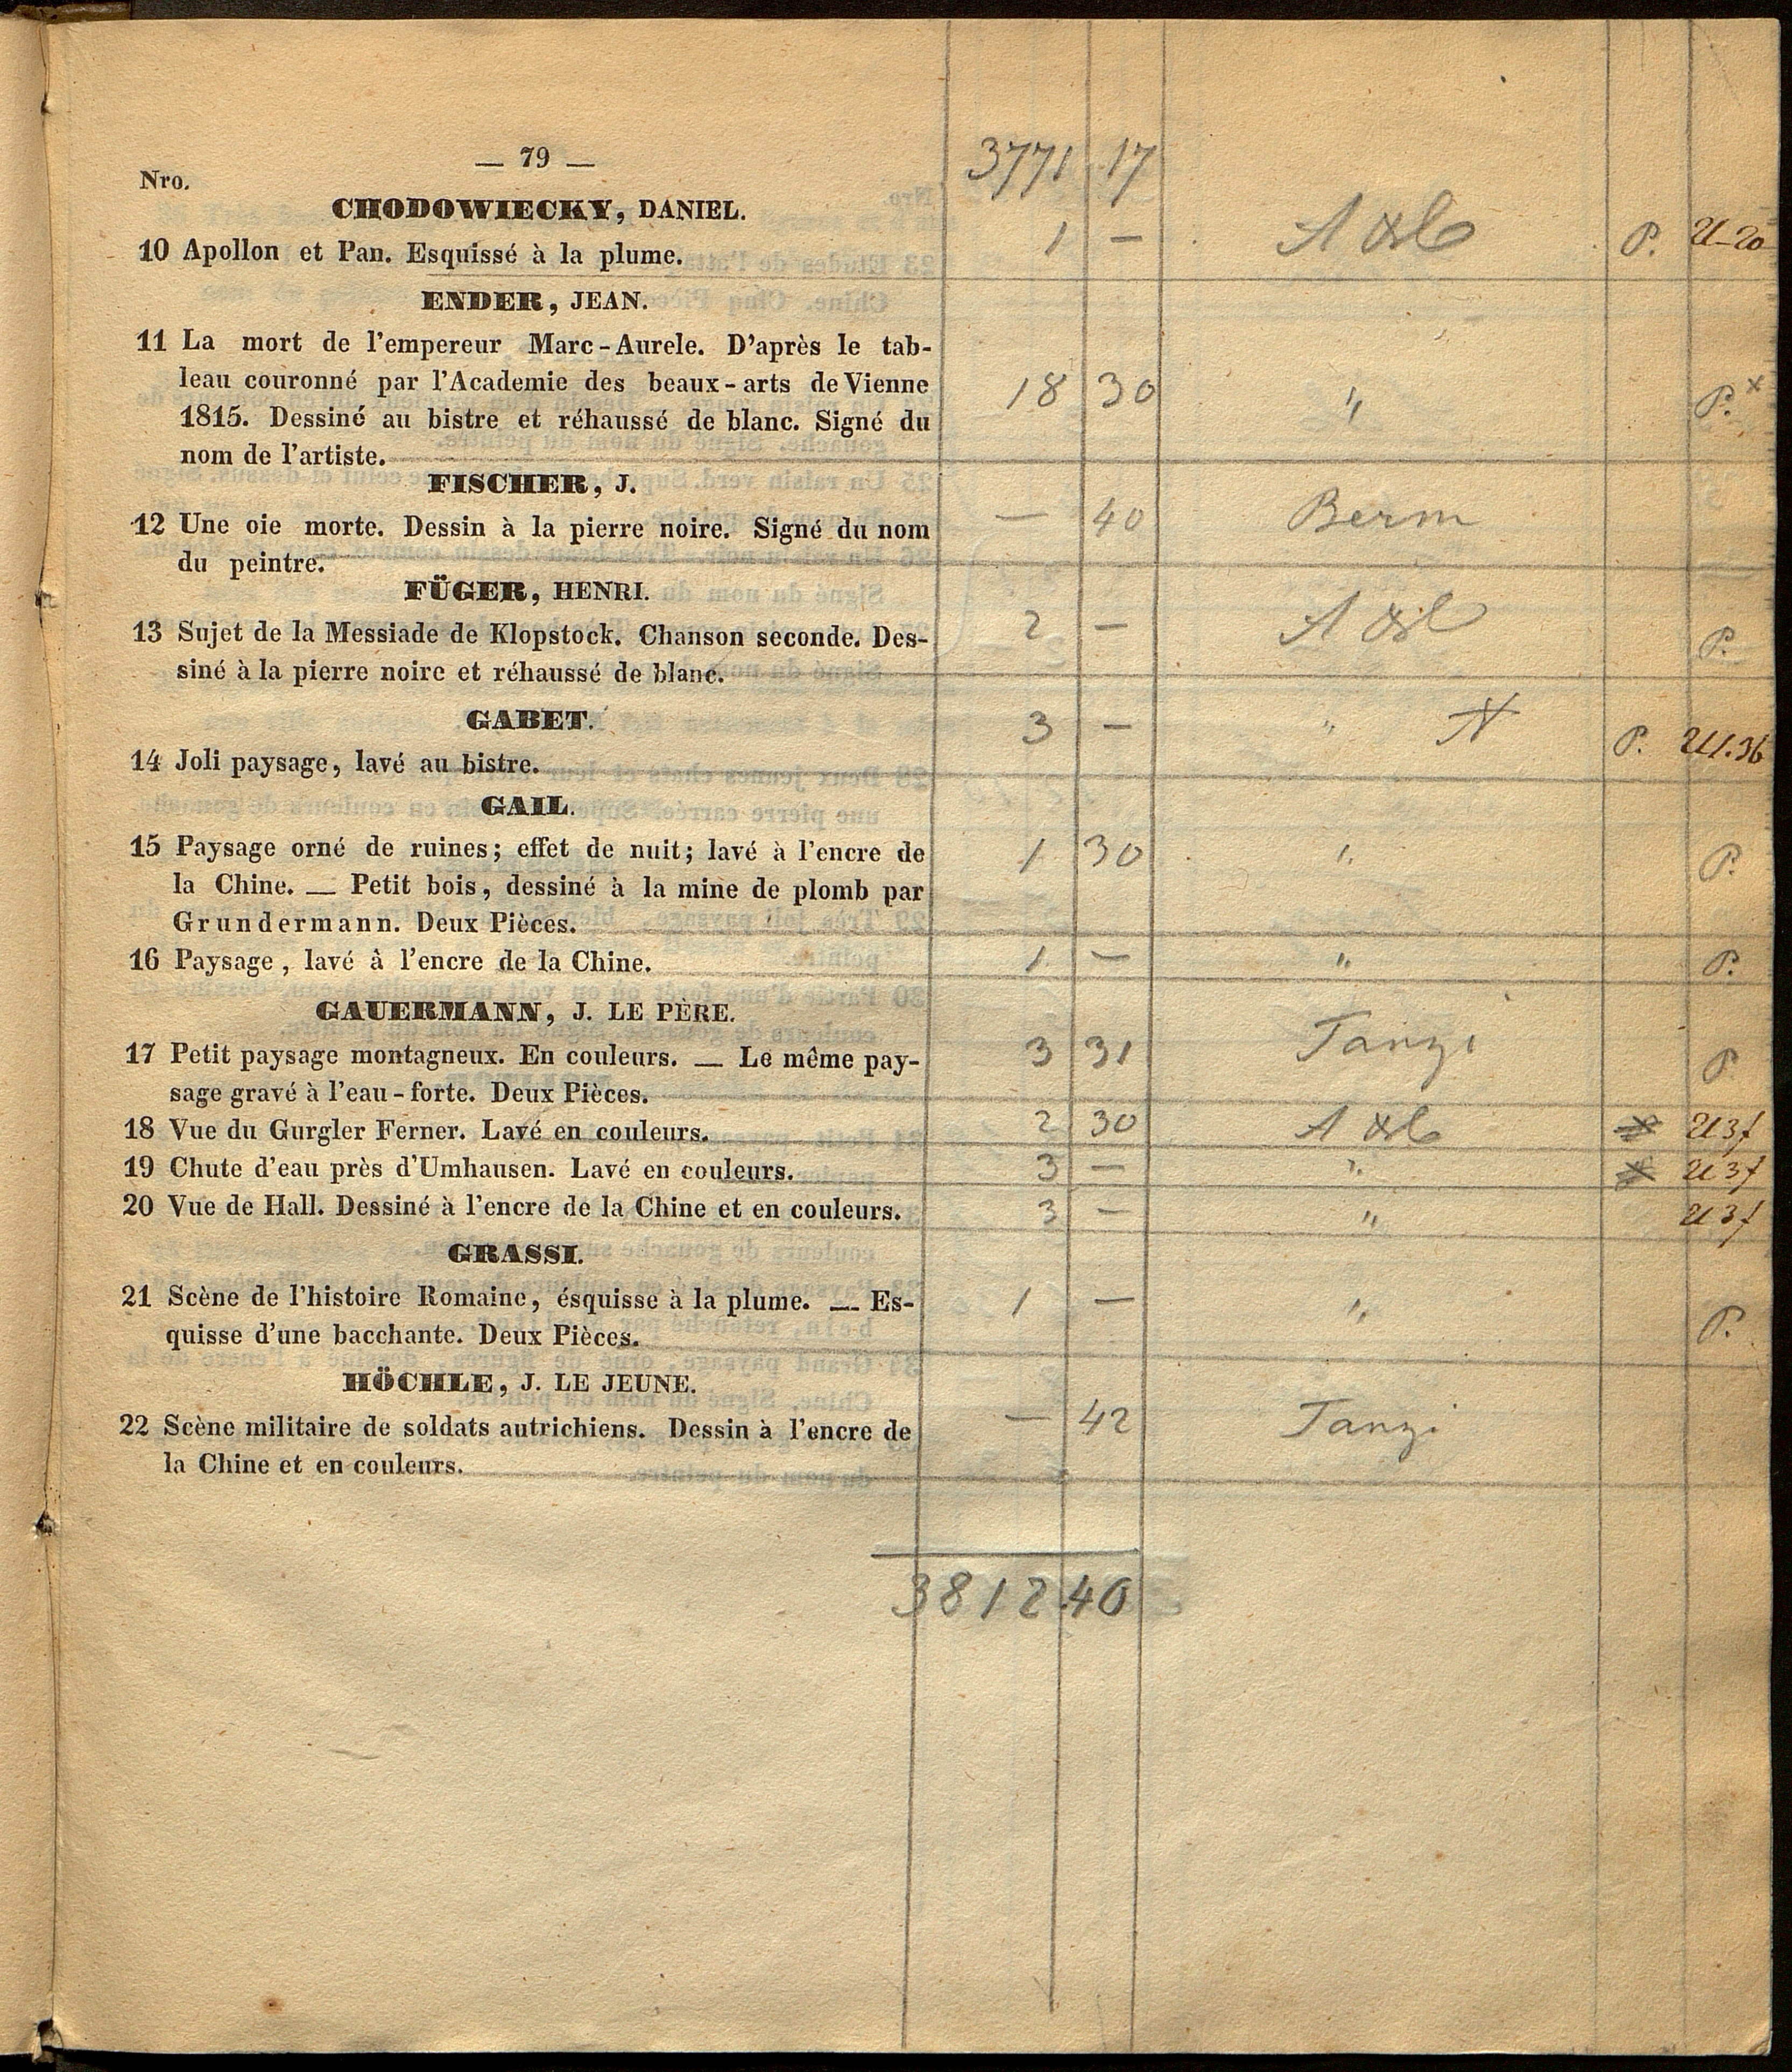 — 79 —
3771 17
Nro.
CHODOWIECKY, DANIEL.
10 Apollon et Pan. Esquissé à la plume. 1 — P. U-20
ENDER, JEAN.
11 La mort de l'empereur Marc-Aurele. D'après le tab-
leau couronné par l'Academie des beaux-arts de Vienne 18 30 " P.x
1815. Dessiné au bistre et réhaussé de blanc. Signé du
nom de l'artiste.
FISCHER, J.
12 Une oie morte. Dessin à la pierre noire. Signé du nom — 40 Berm
du peintre.
FÜGER, HENRI.
13 Sujet de la Messiade de Klopstock. Chanson seconde. Des- 2 — P.
siné à la pierre noire et réhaussé de blanc.
GABET. 3 — "
14 Joli paysage, lavé au bistre. P.
GAIL.
15 Paysage orné de ruines; effet de nuit; lavé à l'encre de 1 30 " P.
la Chine. — Petit bois, dessiné à la mine de plomb par
Grundermann. Deux Pièces.
16 Paysage, lavé à l'encre de la Chine. 1 — " P.
GAUERMANN, J. LE PÈRE.
17 Petit paysage montagneux. En couleurs. — Le même pay- 3 31 Tanzi P
sage gravé à l'eau-forte. Deux Pièces.
18 Vue du Gurgler Ferner. Lavé en couleurs. 2 30
19 Chute d'eau près d'Umhausen. Lavé en couleurs. 3 — "
20 Vue de Hall. Dessiné à l'encre de la Chine et en couleurs. 3 — "
GRASSI.
21 Scène de l'histoire Romaine, ésquisse à la plume. — Es- 1 — " P.
quisse d'une bacchante. Deux Pièces.
HÖCHLE, J. LE JEUNE.
22 Scène militaire de soldats autrichiens. Dessin à l'encre de — 42 Tanzi
la Chine et en couleurs.
3812.40